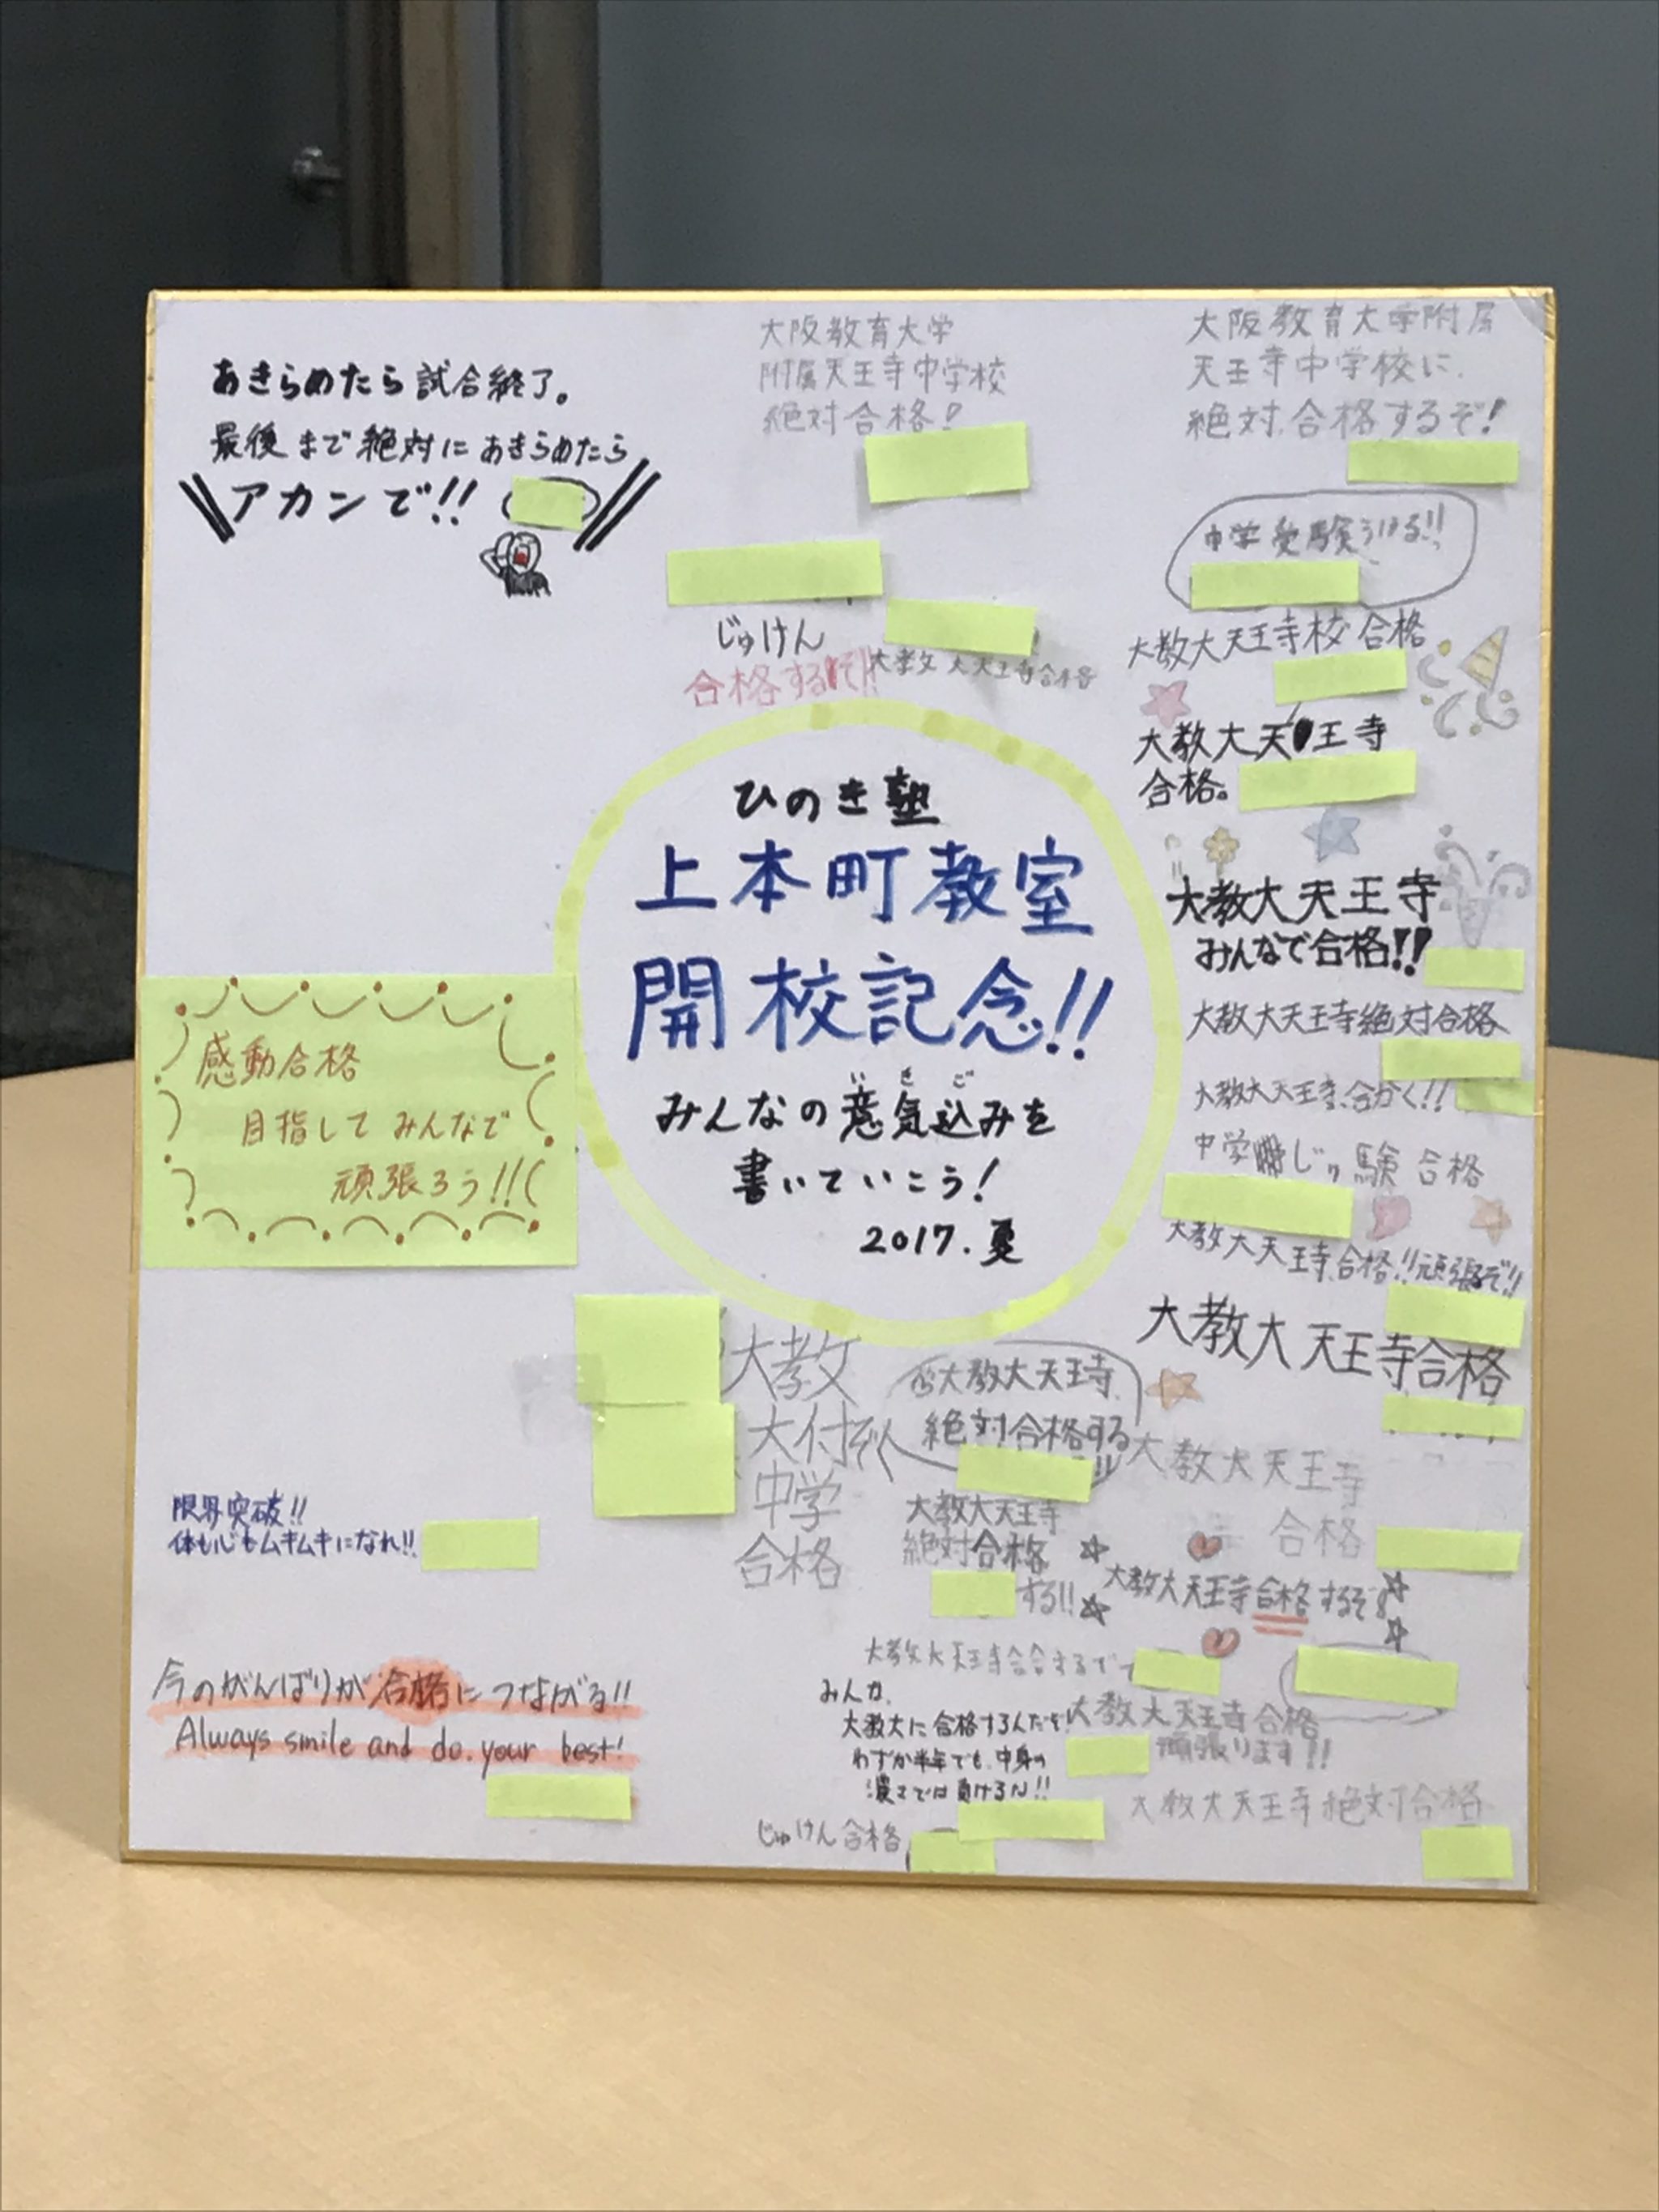 あきらめたら試合終了。
最後まで絶対にあきらめたら
アカンで!!
大阪教育大学
附属天王寺中学校
絶対合格!
大阪教育大学附属
天王寺中学校に
絶対合格するぞ!
中学受験うける!!
じゅけん
合格するぞ!!
大教大天王寺合格
大教大天王寺校合格
大教大天王寺
合格。
大教大天王寺
みんなで合格!!
大教大天王寺絶対合格
大教大天王寺合かく!!
中学じゅ験合格
大教大天王寺合格!!頑張ぞ!!
大教大天王寺合格
ひのき塾
上本町教室
開校記念!!
いきご
みんなの意気込みを
書いていこう!
2017.夏
感動合格
目指してみんなで
頑張ろう!!
大教
大付
中学
合格
大教大天王寺
絶対合格する
大教大天王寺
絶対合格
する!!
大教大天王寺
合格
大教大天王寺合格するぞ
限界突破!!
体も心もムキムキになれ!!
今のがんばりが合格につながる!!
Always smile and do your best!
みんな、
大教大に合格するんだぞ!
わずか半年でも、中身の
濃さでは負けるな!!
大教大天王寺合格
頑張ります!!
大教大天王寺絶対合格
じゅけん合格